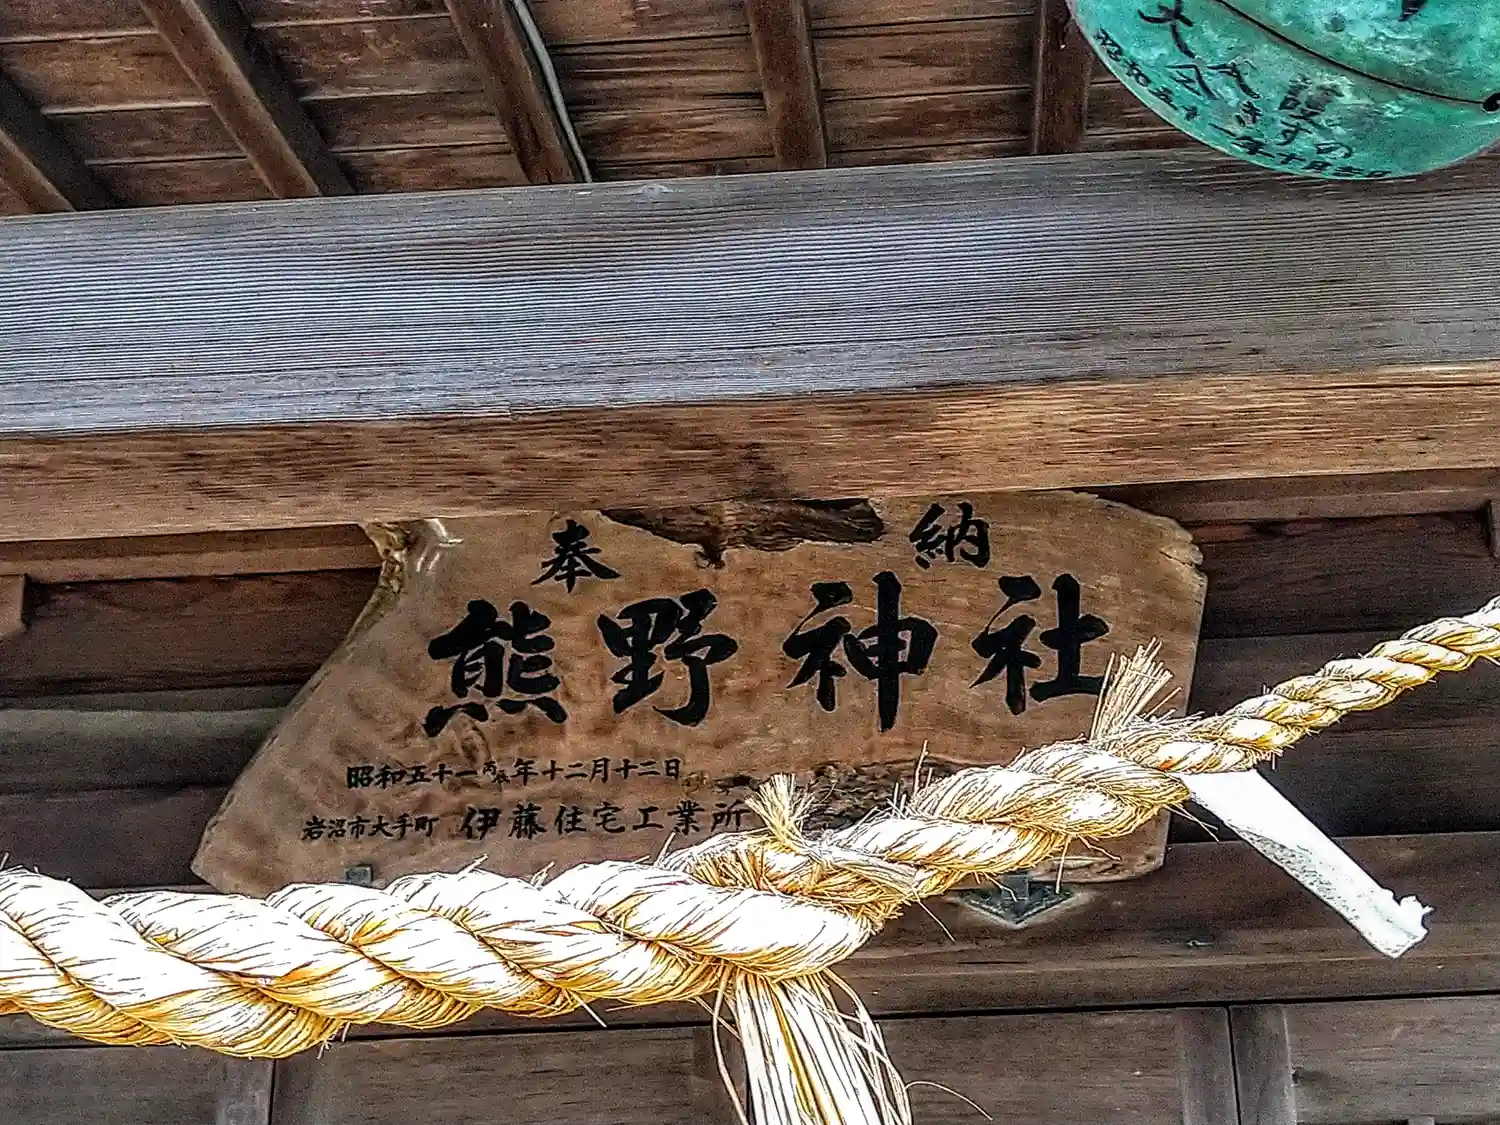 奉納
熊野神社
昭和五十一丙辰年十二月十二日
岩沼市大手町 伊藤住宅工業所
昭和五十一年十